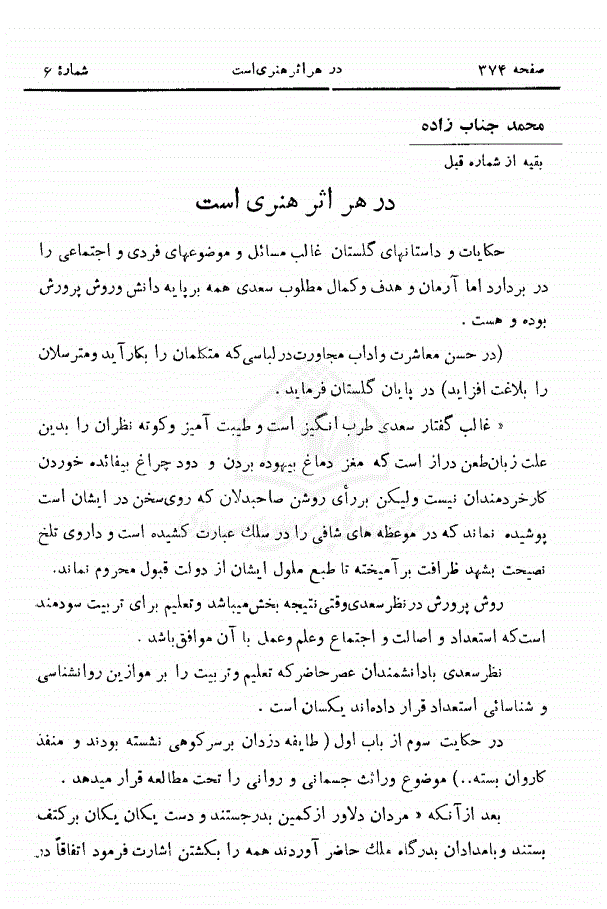 صفحه ۳۷۴ در هر اثر هنری است شمارهٔ ۶
محمد جناب زاده
بقیه از شماره قبل
در هر اثر هنری است
حکایات و داستانهای گلستان غالب مسائل و موضوعهای فردی و اجتماعی را
در بردارد اما آرمان و هدف وکمال مطلوب سعدی همه بر پایه دانش وروش پرورش
بوده و هست .
(در حسن معاشرت واداب مجاورت در لباسی که متکلمان را بکار آید ومترسلان
را بلاغت افزاید) در پایان گلستان فرماید .
« غالب گفتار سعدی طرب انگیز است و طیبت آمیز وکوته نظران را بدین
علت زبان طعن دراز است که مغز دماغ بیهوده بردن و دود چراغ بیفائده خوردن
کارخردمندان نیست ولیکن بررأی روشن صاحبدلان که روی سخن در ایشان است
پوشیده نماند که در موعظه های شافی را در سلك عبارت کشیده است و داروی تلخ
نصیحت بشهد ظرافت برآمیخته تا طبع ملول ایشان از دولت قبول محروم نماند.
روش پرورش در نظر سعدی وقتی نتیجه بخش میباشد وتعلیم برای تربیت سودمند
است که استعداد و اصالت و اجتماع وعلم وعمل با آن موافق باشد .
نظر سعدی بادانشمندان عصر حاضر که تعلیم وتربیت را بر موازین روانشناسی
و شناسائی استعداد قرار داده‌اند یکسان است .
در حکایت سوم از باب اول ( طایفه دزدان بر سر کوهی نشسته بودند و منفذ
کاروان بسته..) موضوع وراثت جسمانی و روانی را تحت مطالعه قرار میدهد .
بعد از آنکه « مردان دلاور از کمین بدرجستند و دست یکان یکان بر کتف
بستند وبامدادان بدرگاه ملك حاضر آوردند همه را بکشتن اشارت فرمود اتفاقاً در